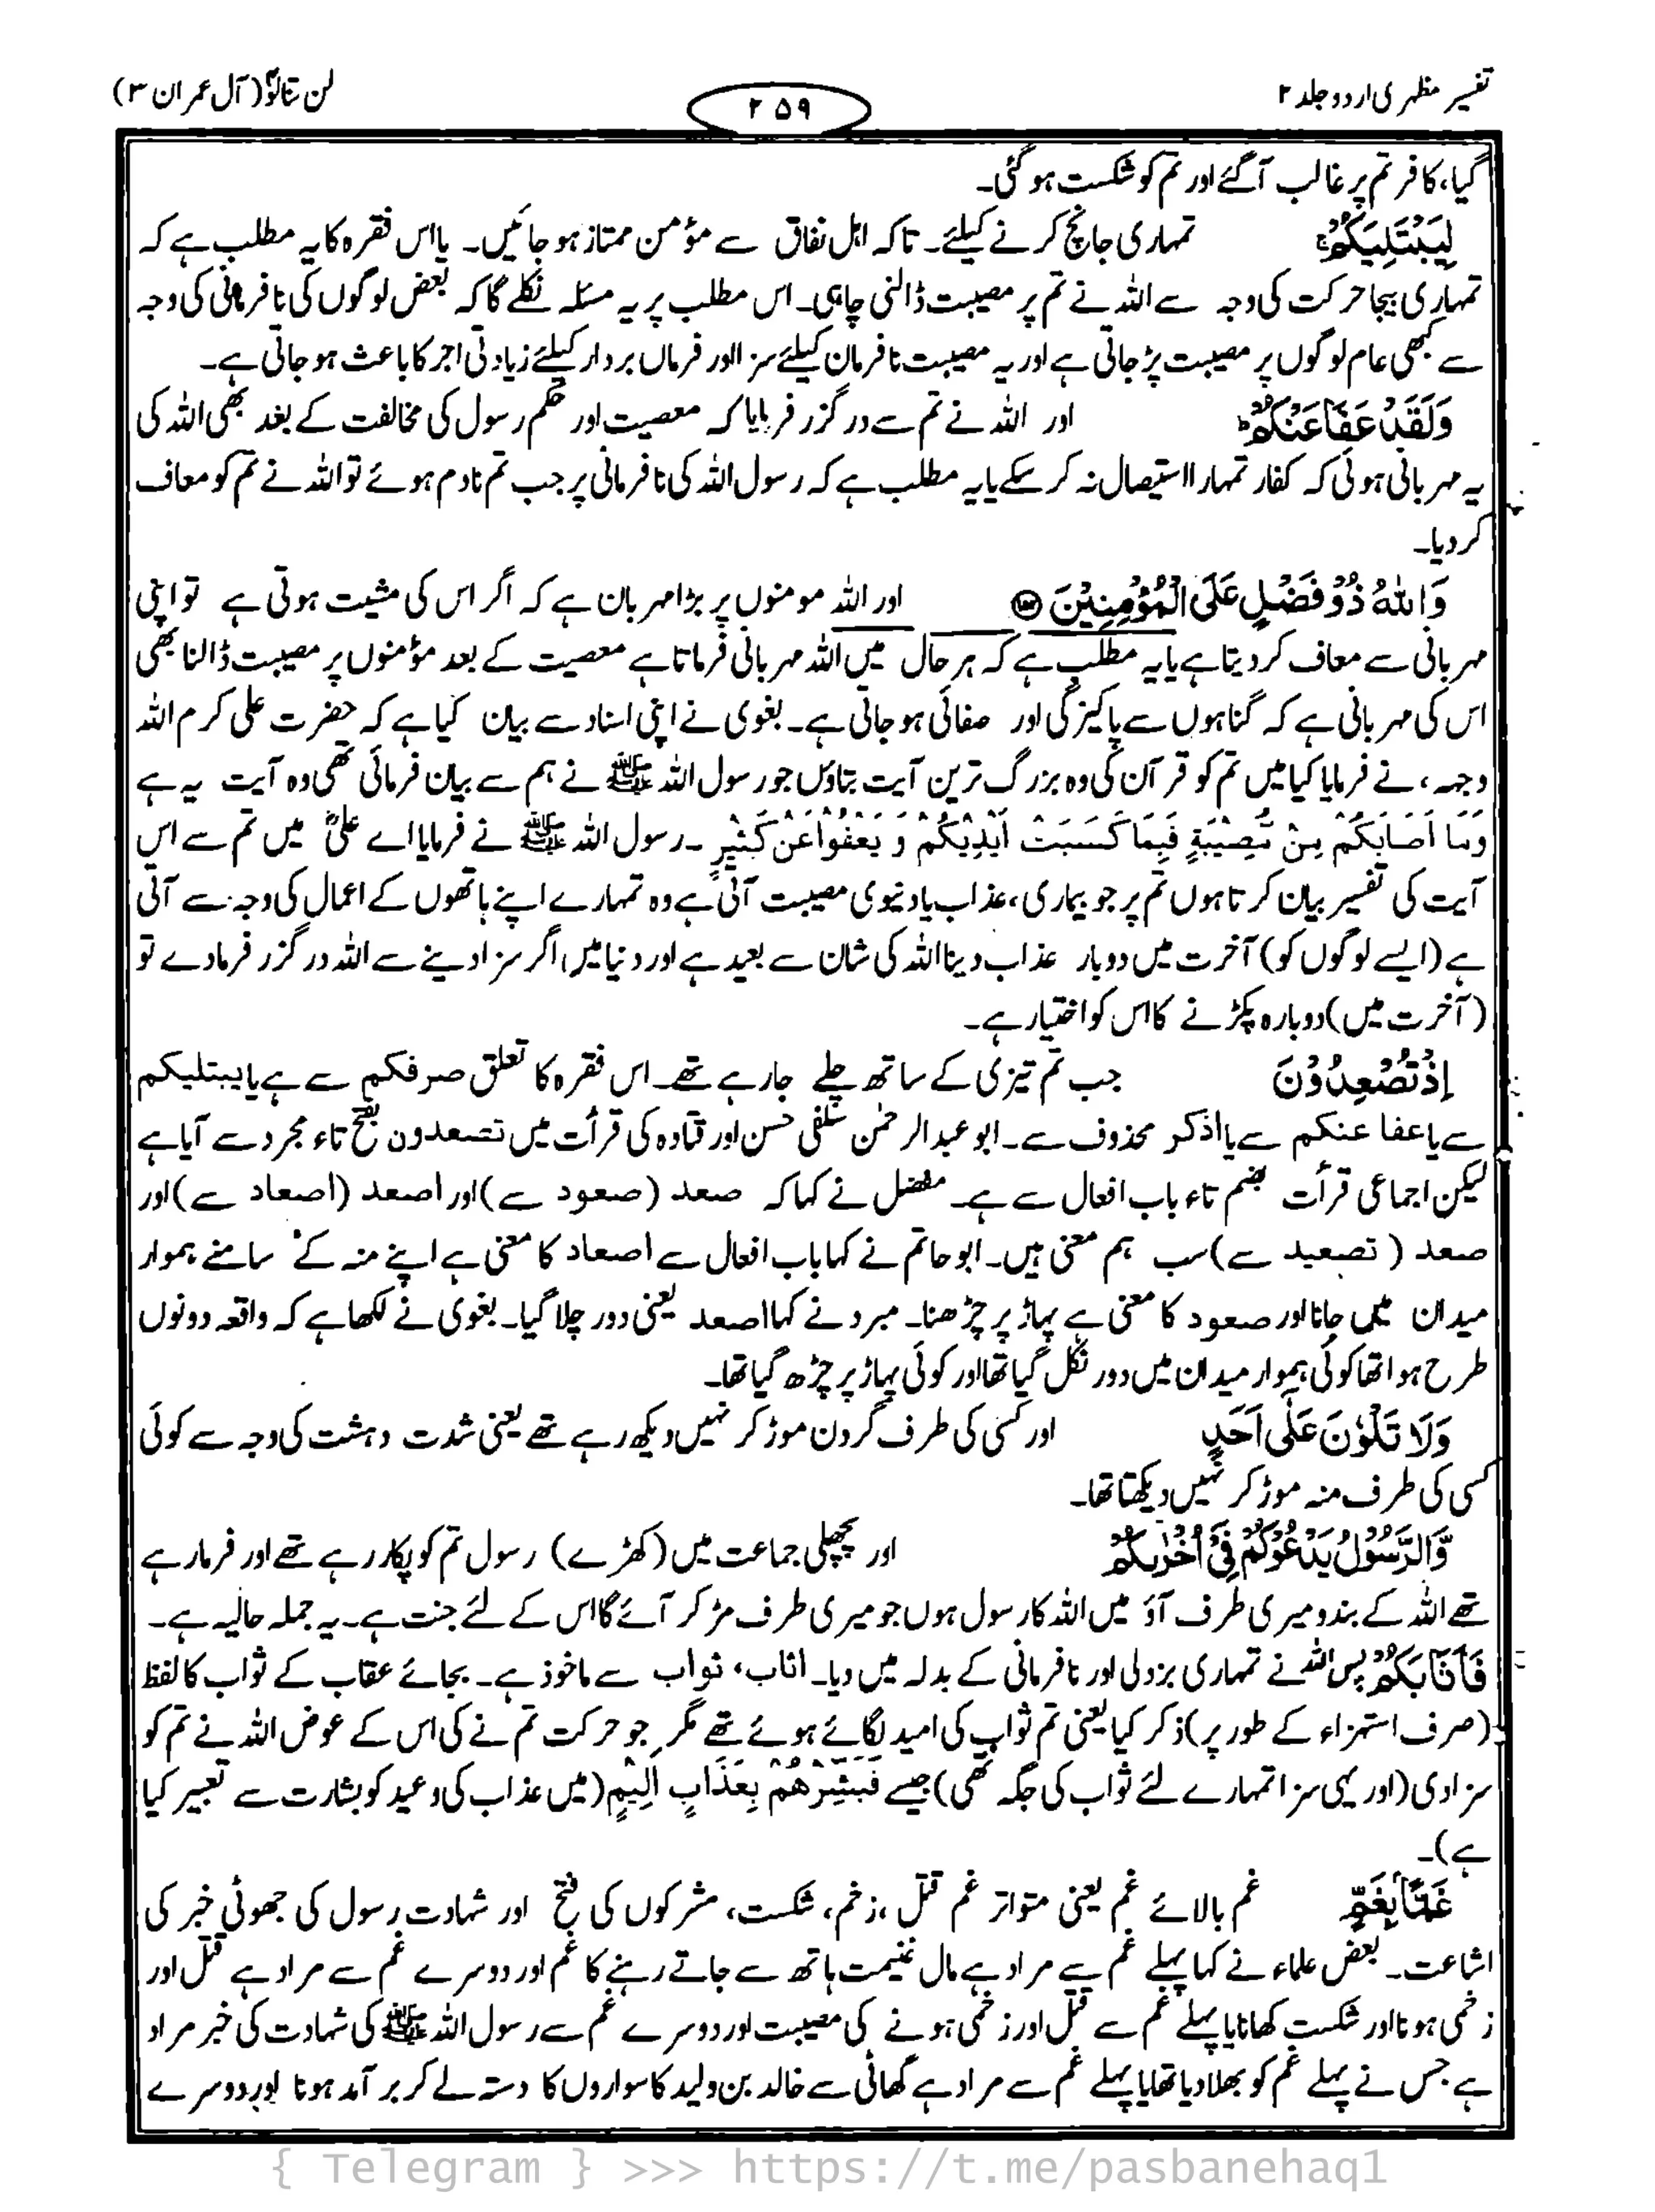 تفسیر مظہری اردو جلد ۲
۲۵۹
لن تنالوا (آل عمران ۳)
گیا، کافر تم پر غالب آگئے اور تم کو شکست ہو گئی۔
لِيَبْتَلِيَكُمْ ۚ تمہاری جانچ کرنے کیلئے۔ تاکہ اہل نفاق سے مؤمن ممتاز ہو جائیں۔ یا اس فقرہ کا یہ مطلب ہے کہ
تمہاری بیجا حرکت کی وجہ سے اللہ نے تم پر مصیبت ڈالنی چاہی۔ اس مطلب پر یہ مسئلہ نکلے گا کہ بعض لوگوں کی نافرمانی کی وجہ
سے کبھی عام لوگوں پر مصیبت پڑ جاتی ہے اور یہ مصیبت نافرمان کیلئے سزا اور فرماں بردار کیلئے زیادتی اجر کا باعث ہو جاتی ہے۔
وَلَقَدْ عَفَا عَنْكُمْ ؕ اور اللہ نے تم سے درگزر فرمایا کہ معصیت اور حکم رسول کی مخالفت کے بعد بھی اللہ کی
یہ مہربانی ہوئی کہ کفار تمہارا استیصال نہ کر سکے یا یہ مطلب ہے کہ رسول اللہ کی نافرمانی پر جب تم نادم ہوئے تو اللہ نے تم کو معاف
کر دیا۔
وَاللّٰهُ ذُوْ فَضْلٍ عَلَى الْمُؤْمِنِيْنَ ۝۱۵۲ اور اللہ مومنوں پر بڑا مہربان ہے کہ اگر اس کی مشیت ہوتی ہے تو اپنی
مہربانی سے معاف کر دیتا ہے یا یہ مطلب ہے کہ ہر حال میں اللہ مہربانی فرماتا ہے معصیت کے بعد مؤمنوں پر مصیبت ڈالنا بھی
اس کی مہربانی ہے کہ گناہوں سے پاکیزگی اور صفائی ہو جاتی ہے۔ بغوی نے اپنی اسناد سے بیان کیا ہے کہ حضرت علی کرم اللہ
وجہہ، نے فرمایا کیا میں تم کو قرآن کی وہ بزرگ ترین آیت بتاؤں جو رسول اللہ ﷺ نے ہم سے بیان فرمائی تھی وہ آیت یہ ہے
وَمَا اَصَابَكُمْ مِنْ مُّصِيْبَةٍ فَبِمَا كَسَبَتْ اَيْدِيْكُمْ وَ يَعْفُوْا عَنْ كَثِيْرٍ ۔ رسول اللہ ﷺ نے فرمایا اے علیؓ میں تم سے اس
آیت کی تفسیر بیان کرتا ہوں تم پر جو بیماری، عذاب یا دنیوی مصیبت آتی ہے وہ تمہارے اپنے ہاتھوں کے اعمال کی وجہ سے آتی
ہے (ایسے لوگوں کو) آخرت میں دوبار عذاب دینا اللہ کی شان سے بعید ہے اور دنیا میں اگر سزا دینے سے اللہ درگزر فرمادے تو
(آخرت میں) دوبارہ پکڑنے کا اس کو اختیار ہے۔
اِذْ تُصْعِدُوْنَ جب تم تیزی کے ساتھ چلے جارہے تھے۔ اس فقرہ کا تعلق صرفکم سے ہے یا یبتلیکم
سے یا عفا عنکم سے یا اذکر محذوف سے۔ ابو عبدالرحمٰن سلفی حسن اور قتادہ کی قرأت میں تصعدون بفتح تاء مجرد سے آیا ہے
لیکن اجماعی قرأت بضم تاء باب افعال سے ہے۔ مفضل نے کہا کہ صعد (صعود سے) اور اصعد (اصعاد سے) اور
صعد (تصعید سے) سب ہم معنی ہیں۔ ابو حاتم نے کہا باب افعال سے اصعاد کا معنی ہے اپنے منہ کے سامنے ہموار
میدان میں جانا اور صعود کا معنی ہے پہاڑ پر چڑھنا۔ مبرد نے کہا اصعد یعنی دور چلا گیا۔ بغوی نے لکھا ہے کہ واقعہ دونوں
طرح ہوا تھا کوئی ہموار میدان میں دور نکل گیا تھا اور کوئی پہاڑ پر چڑھ گیا تھا۔
وَلَا تَلْوٗنَ عَلٰٓى اَحَدٍ اور کسی کی طرف گردن موڑ کر نہیں دیکھ رہے تھے یعنی شدت دہشت کی وجہ سے کوئی
کسی کی طرف منہ موڑ کر نہیں دیکھتا تھا۔
وَّالرَّسُوْلُ يَدْعُوْكُمْ فِيْٓ اُخْرٰىكُمْ اور پچھلی جماعت میں (کھڑے) رسول تم کو پکار رہے تھے اور فرمارہے
تھے اللہ کے بندو میری طرف آؤ میں اللہ کا رسول ہوں جو میری طرف مڑ کر آئے گا اس کے لئے جنت ہے۔ یہ جملہ حالیہ ہے۔
فَاَثَابَكُمْ پس اللہ نے تمہاری بزدلی اور نافرمانی کے بدلہ میں دیا۔ اثاب، ثواب سے ماخوذ ہے۔ بجائے عقاب کے ثواب کا لفظ
(صرف استہزاء کے طور پر) ذکر کیا یعنی تم ثواب کی امید لگائے ہوئے تھے مگر جو حرکت تم نے کی اس کے عوض اللہ نے تم کو
سزا دی (اور یہی سزا تمہارے لئے ثواب کی جگہ تھی) جیسے فَبَشِّرْهُمْ بِعَذَابٍ اَلِيْمٍ (میں عذاب کی وعید کو بشارت سے تعبیر کیا
ہے)۔
غَمًّۢا بِغَمٍّ غم بالائے غم یعنی متواتر غم قتل، زخم، شکست، مشرکوں کی فتح اور شہادت رسول کی جھوٹی خبر کی
اشاعت۔ بعض علماء نے کہا پہلے غم سے مراد ہے مال غنیمت ہاتھ سے جاتے رہنے کا غم اور دوسرے غم سے مراد ہے قتل اور
زخمی ہونا اور شکست کھانا یا پہلے غم سے قتل اور زخمی ہونے کی مصیبت اور دوسرے غم سے رسول اللہ ﷺ کی شہادت کی خبر مراد
ہے جس نے پہلے غم کو بھلا دیا تھا یا پہلے غم سے مراد ہے گھاٹی سے خالد بن ولید کا سواروں کا دستہ لے کر برآمد ہونا اور دوسرے
{ Telegram } >>> https://t.me/pasbanehaq1